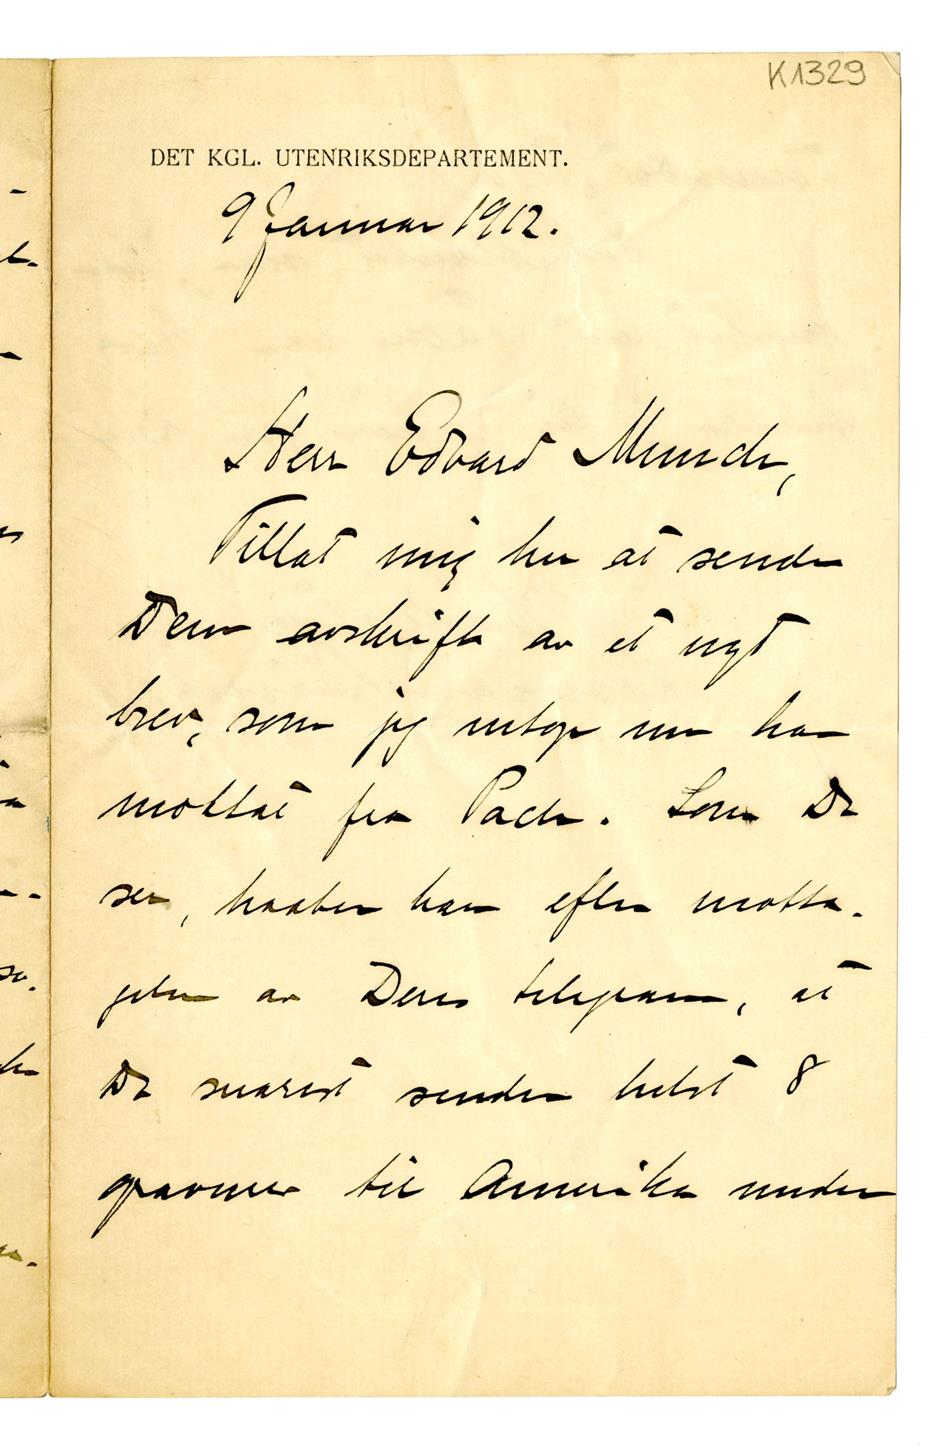 K1329
DET KGL. UTENRIKSDEPARTEMENT.
9 Januar 1912.
Herr Edvard Munch,
Tillat mig her at sende
Dem avskrift av et nyt
brev, som jeg netop nu har
mottat fra Pach. Som De
ser, haaber han efter motta-
gelsen av Deres telegram, at
De snarest sender helst 8
gravurer til Amerika under